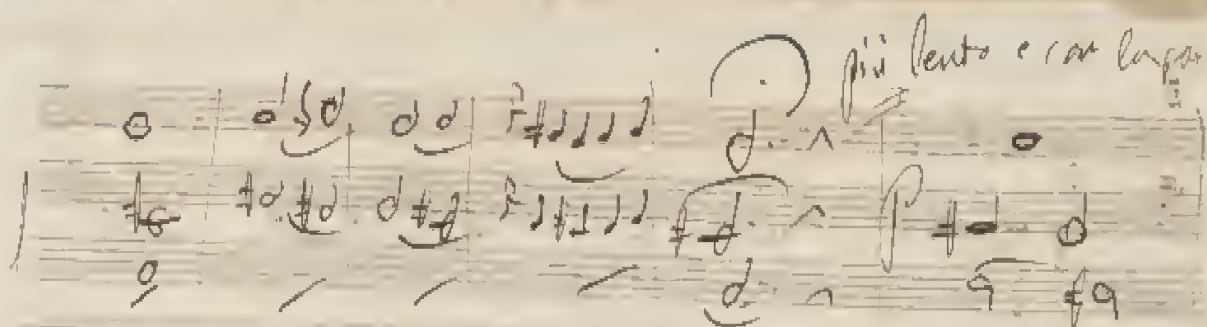 più lento e con larga